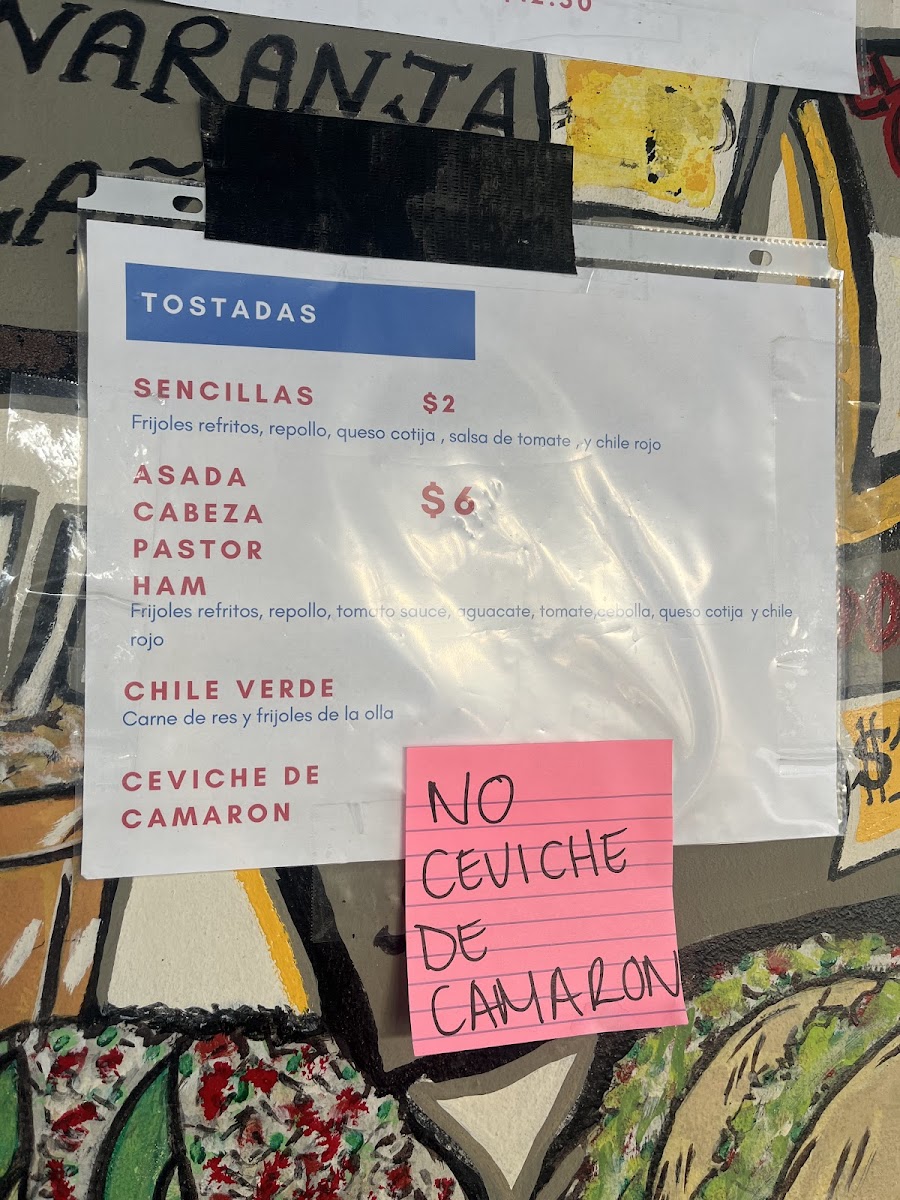 NARANJA
TOSTADAS
SENCILLAS $2
Frijoles refritos, repollo, queso cotija , salsa de tomate , y chile rojo
ASADA
CABEZA $6
PASTOR
HAM
Frijoles refritos, repollo, tomato sauce, aguacate, tomate,cebolla, queso cotija y chile
rojo
CHILE VERDE
Carne de res y frijoles de la olla
CEVICHE DE
CAMARON
NO
CEVICHE
DE
CAMARON